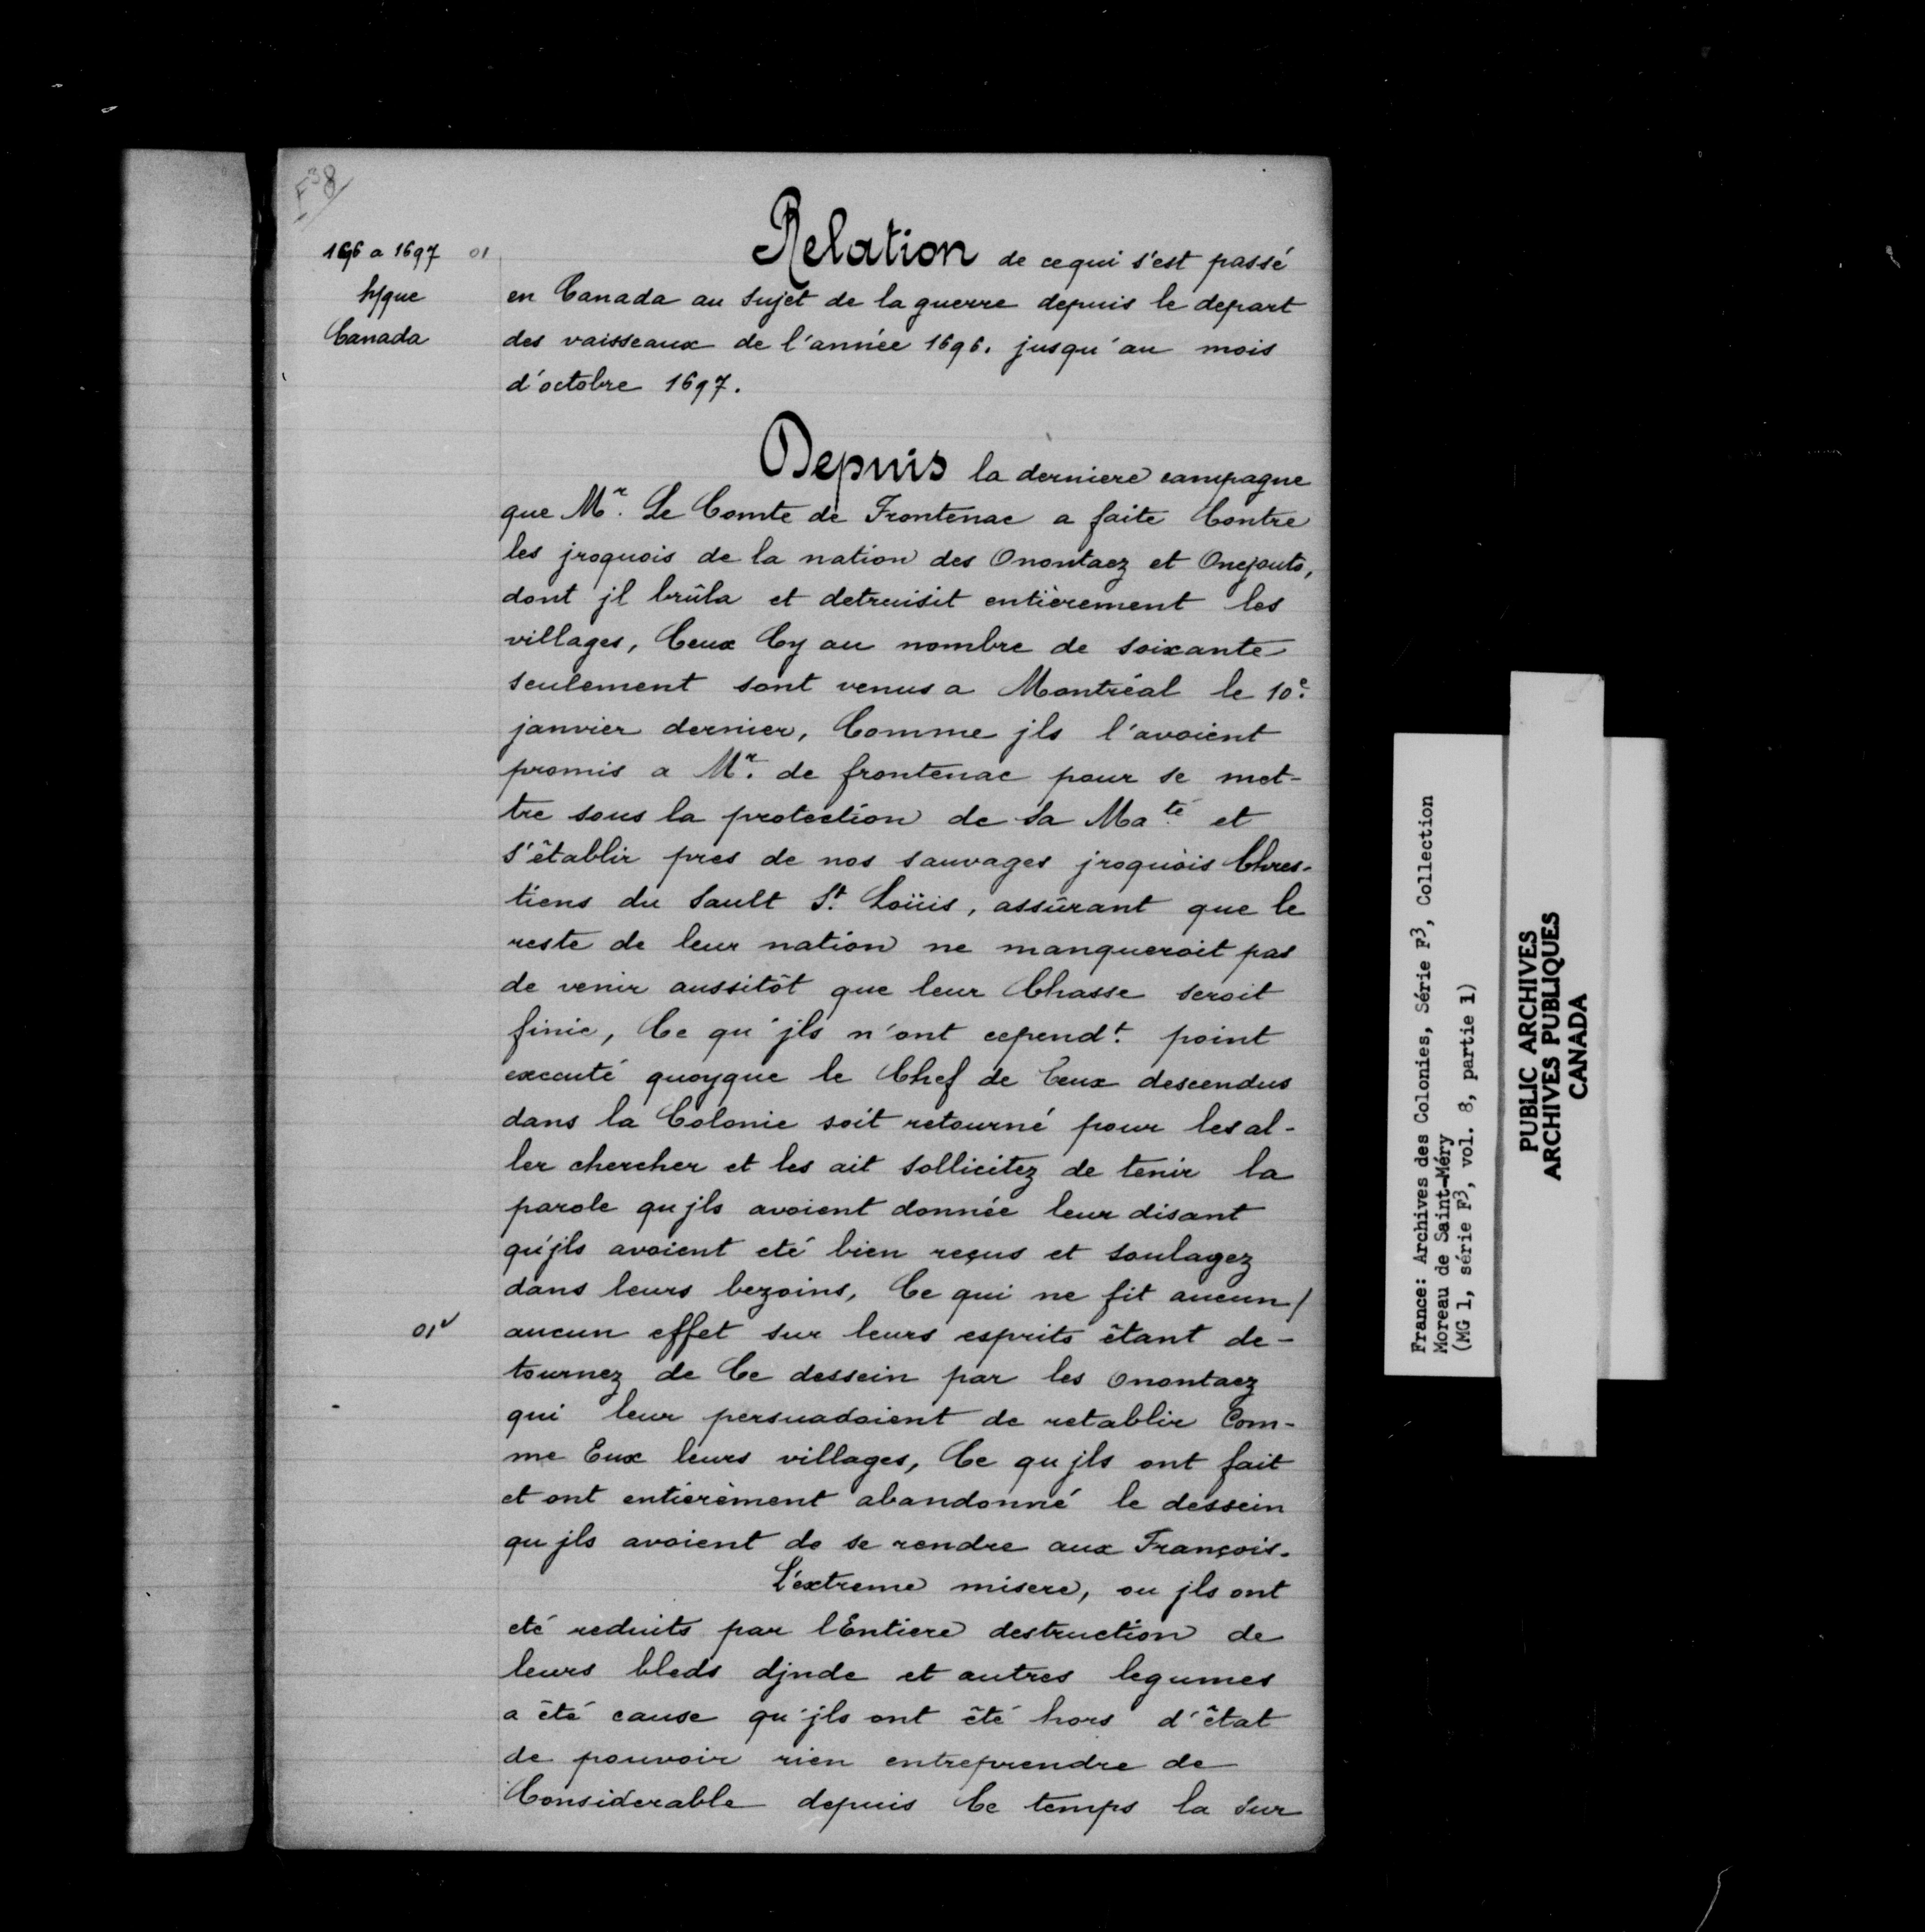 F³8
1696 a 1697 01
hyque
Canada
Relation de ce qui s'est passé
en Canada au sujet de la guerre depuis le depart
des vaisseaux de l'année 1696. jusqu'au mois
d'octobre 1697.
Depuis la derniere campagne
que Mr. Le Comte de Frontenac a faite Contre
les jroquois de la nation des Onontaez et Onejouts,
dont jl brûla et detruisit entièrement les
villages, Ceux Cy au nombre de soixante
seulement sont venus a Montréal le 10e.
janvier dernier, Comme jls l'avoient
promis a Mr. de frontenac pour se met-
tre sous la protection de sa Maté et
s'établir pres de nos sauvages jroquois Chres-
tiens du Sault St. Loüis, assûrant que le
reste de leur nation ne manqueroit pas
de venir aussitôt que leur Chasse seroit
finie, Ce qu'jls n'ont cependt. point
executé quoyque le Chef de Ceux descendus
dans la Colonie soit retourné pour les al-
ler chercher et les ait sollicitez de tenir la
parole qu jls avoient donnée leur disant
qu'jls avoient eté bien reçus et soulagez
dans leurs bezoins, Ce qui ne fit aucun/
01v
aucun effet sur leurs esprits êtant de-
tournez de Ce dessein par les onontaez
qui leur persuadoient de retablir Com-
me Eux leurs villages, Ce qu jls ont fait
et ont entierement abandonné le dessein
qu jls avoient de se rendre aux François.
L'extreme misere, ou jls ont
eté reduits par l'Entiere destruction de
leurs bleds djnde et autres legumes
a êté cause qu'jls ont êté hors d'êtat
de pouvoir rien entreprendre de
Considerable depuis Ce temps la sur
France: Archives des Colonies, Série F³, Collection
Moreau de Saint-Méry
(MG 1, série F³, vol. 8, partie 1)
PUBLIC ARCHIVES
ARCHIVES PUBLIQUES
CANADA